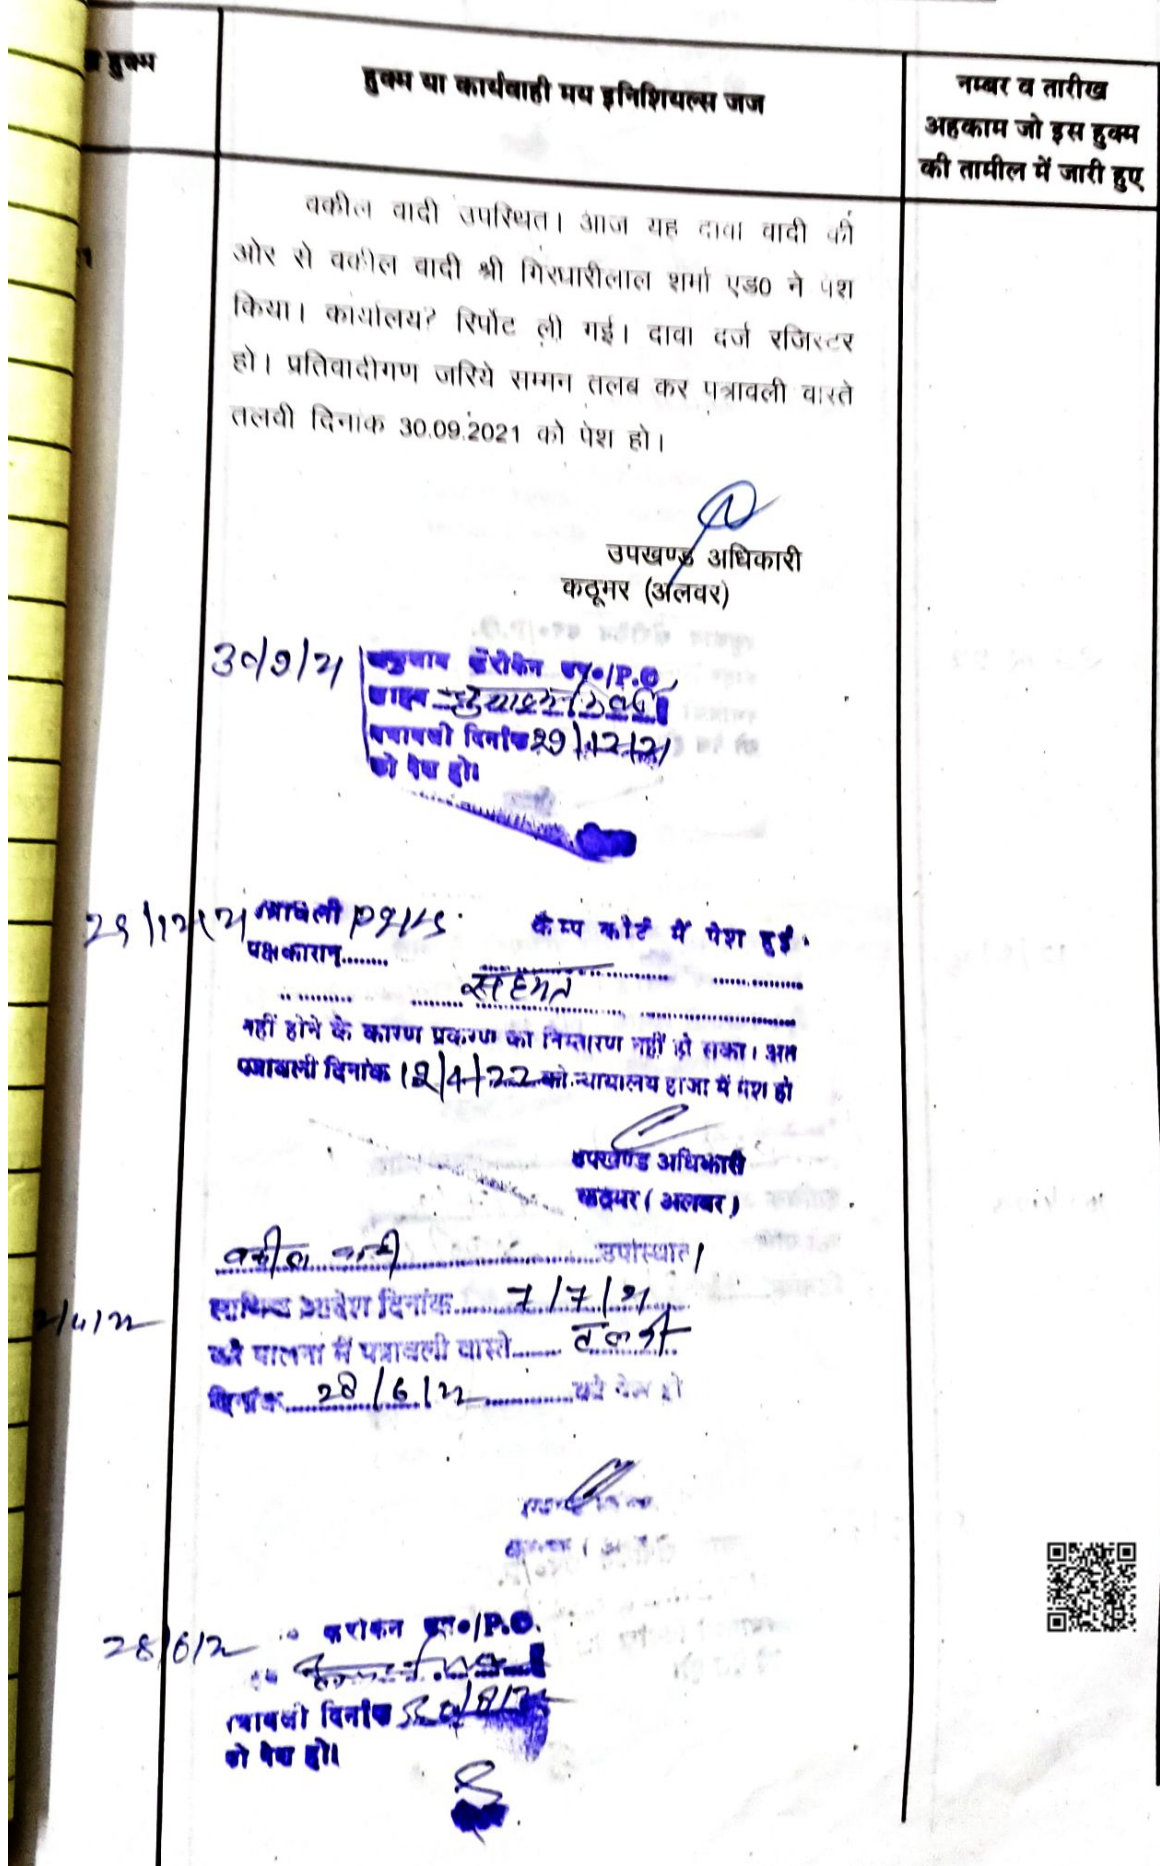 हुक्म
हुक्म या कार्यवाही मय इनिशियल्स जज
नम्बर व तारीख
अहकाम जो इस हुक्म
की तामील में जारी हुए
वकील वादी उपस्थित। आज यह दावा वादी की
ओर से वकील वादी श्री गिरधारीलाल शर्मा एड0 ने पेश
किया। कार्यालय? रिर्पोट ली गई। दावा दर्ज रजिस्टर
हो। प्रतिवादीगण जरिये सम्मन तलब कर पत्रावली वास्ते
तलवी दिनांक 30.09.2021 को पेश हो।
उपखण्ड अधिकारी
कठूमर (अलवर)
30/9/21
फरीकेन /P.O
पत्रावली दिनांक 29/12/21
को पेश हो।
29/12/21 पत्रावली कैम्प कोर्ट में पेश हुई.
पक्षकारान्........
सहमत
नहीं होने के कारण प्रकरण का निस्तारण नहीं हो सका। अतः
पत्रावली दिनांक 12/4/22 को न्यायालय हाजा में पेश हो
उपखण्ड अधिकारी
कठूमर (अलवर)
वकील वादी उपस्थित।
साबिक आदेश दिनांक 7/7/21
की पालना में पत्रावली वास्ते तलवी
दिनांक 28/6/22 को पेश हो
28/6/22
/P.O.
पत्रावली दिनांक
को पेश हो।